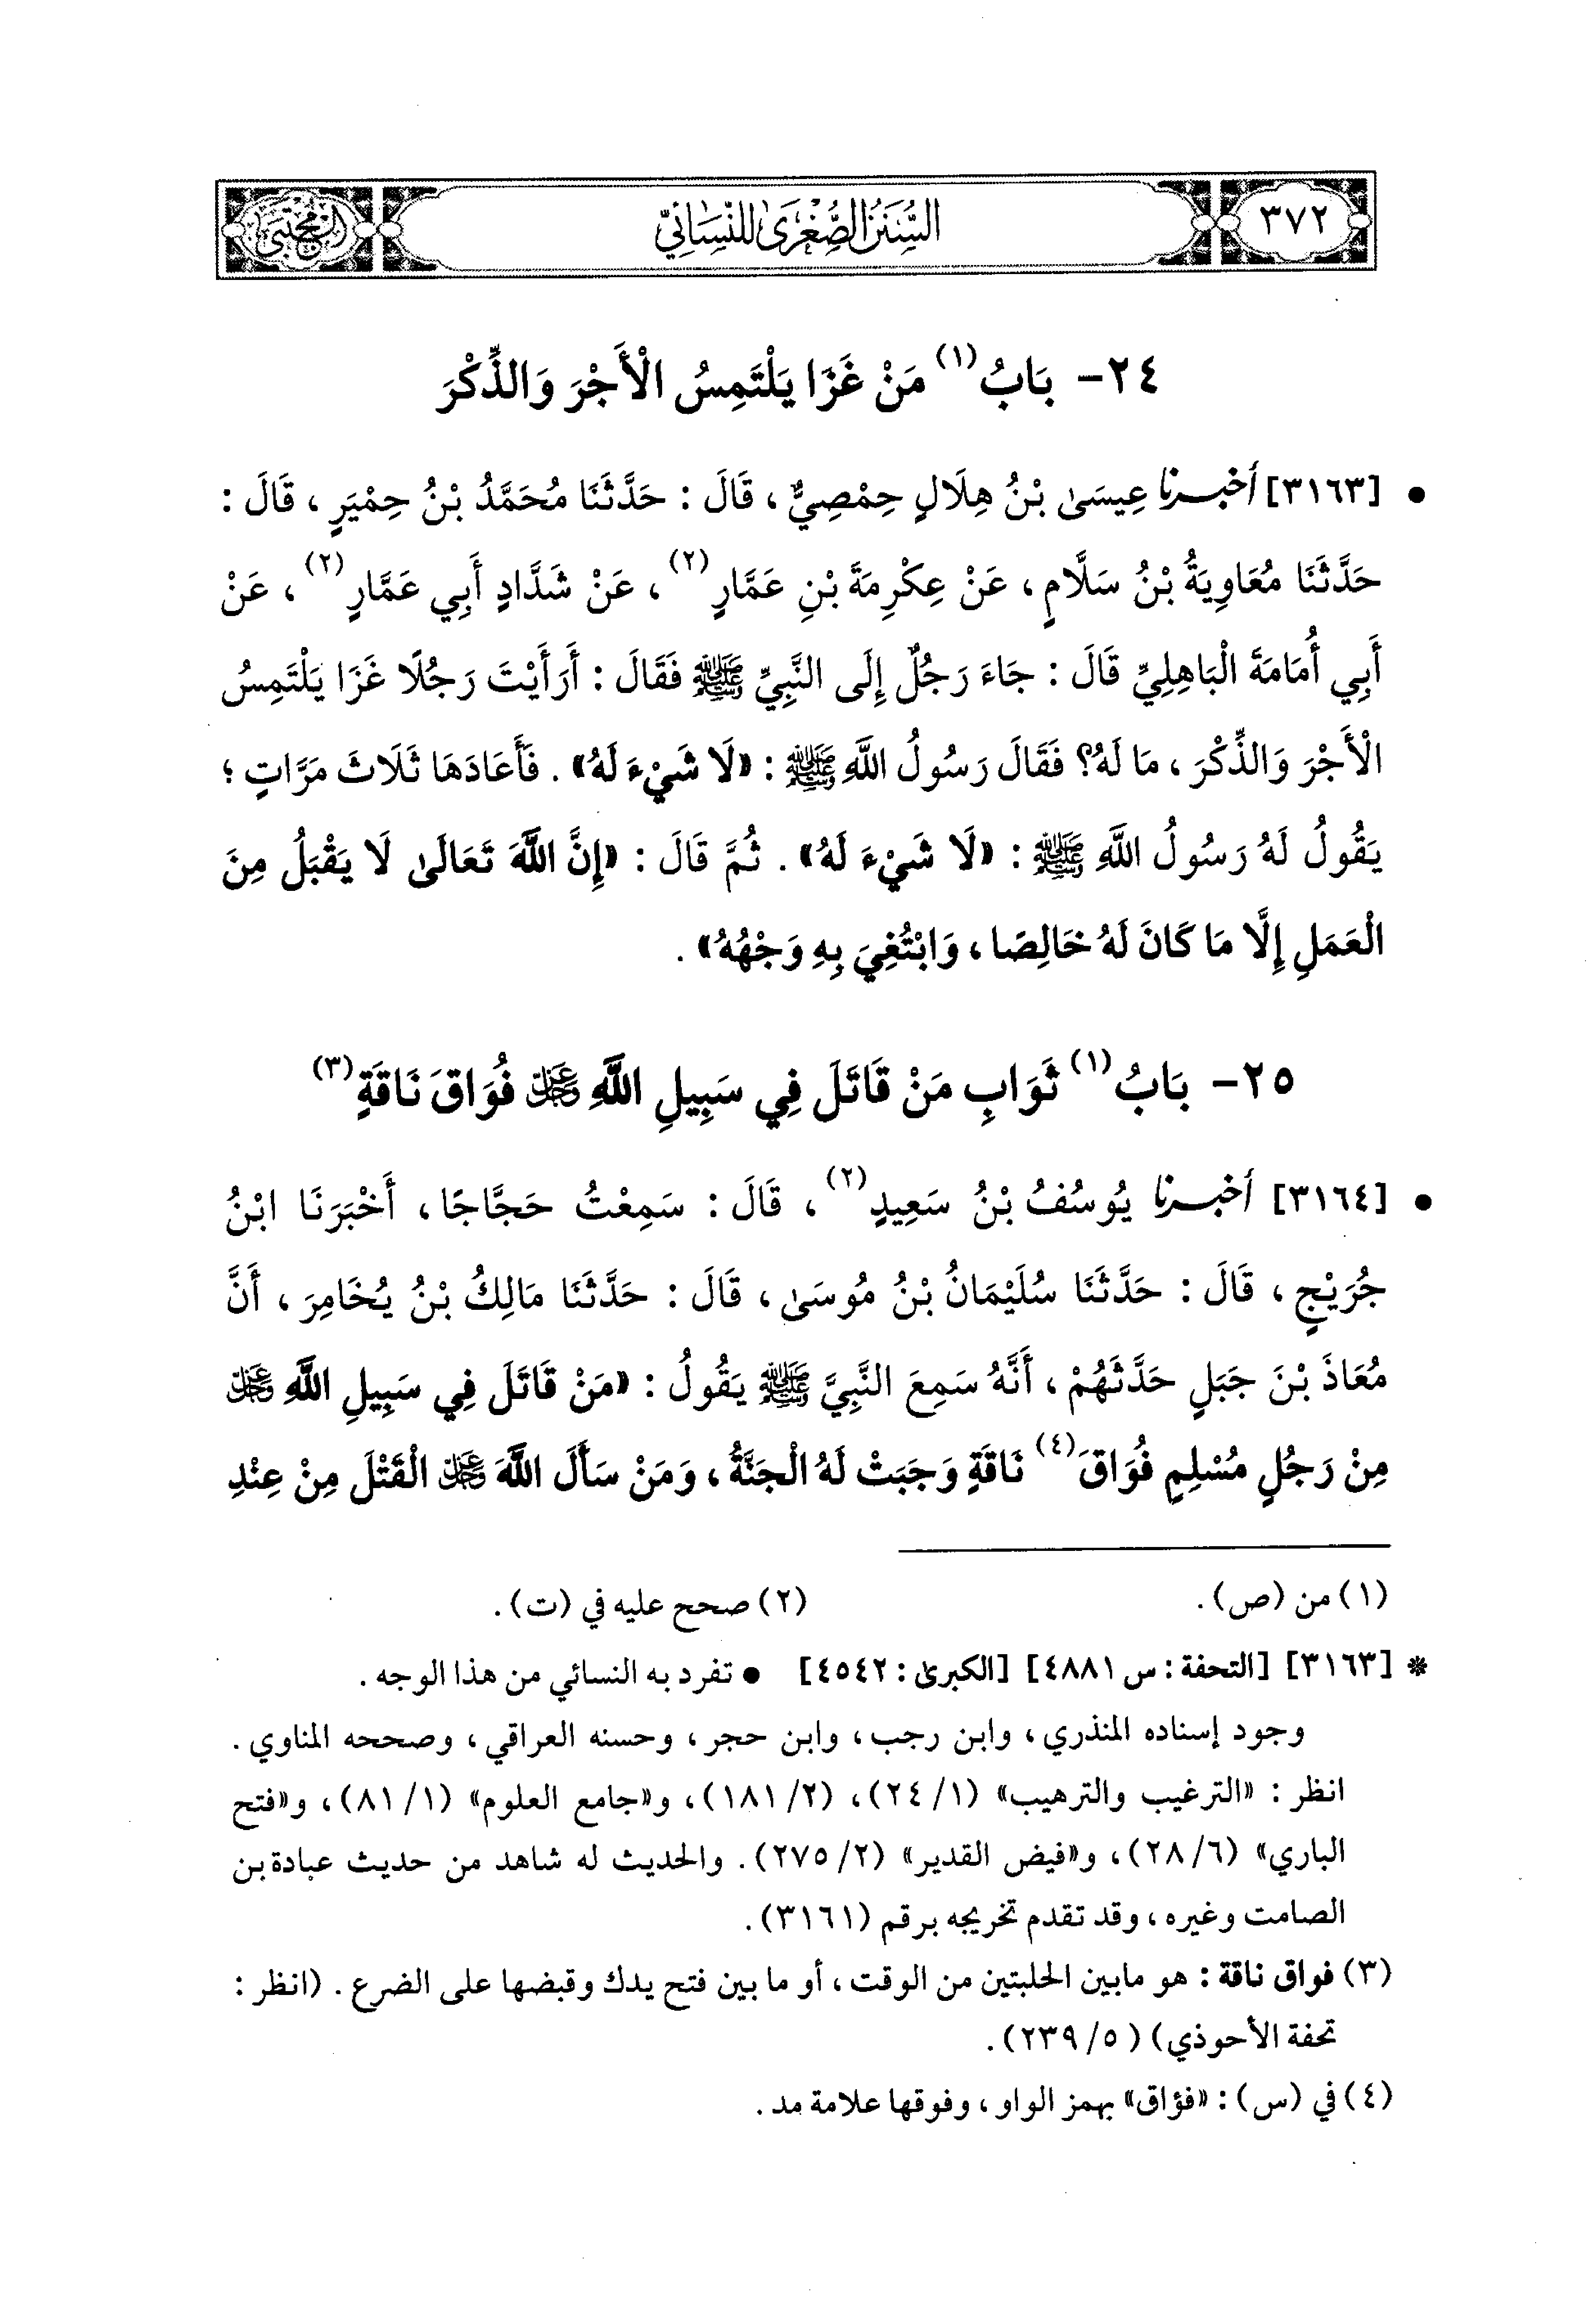 ٣٧٢
السُّنَنُ الصُّغْرَىٰ لِلنَّسَائِيِّ
المجتبى
٢٤- بَابُ(١) مَنْ غَزَا يَلْتَمِسُ الْأَجْرَ وَالذِّكْرَ
• [٣١٦٣] أخبرنا عِيسَىٰ بْنُ هِلَالٍ حِمْصِيٌّ، قَالَ : حَدَّثَنَا مُحَمَّدُ بْنُ حِمْيَرٍ، قَالَ :
حَدَّثَنَا مُعَاوِيَةُ بْنُ سَلَّامٍ، عَنْ عِكْرِمَةَ بْنِ عَمَّارٍ(٢)، عَنْ شَدَّادٍ أَبِي عَمَّارٍ(٢)، عَنْ
أَبِي أُمَامَةَ الْبَاهِلِيِّ قَالَ : جَاءَ رَجُلٌ إِلَى النَّبِيِّ ﷺ فَقَالَ : أَرَأَيْتَ رَجُلًا غَزَا يَلْتَمِسُ
الْأَجْرَ وَالذِّكْرَ، مَا لَهُ؟ فَقَالَ رَسُولُ اللَّهِ ﷺ : «لَا شَيْءَ لَهُ» . فَأَعَادَهَا ثَلَاثَ مَرَّاتٍ ؛
يَقُولُ لَهُ رَسُولُ اللَّهِ ﷺ : «لَا شَيْءَ لَهُ» . ثُمَّ قَالَ : «إِنَّ اللَّهَ تَعَالَىٰ لَا يَقْبَلُ مِنَ
الْعَمَلِ إِلَّا مَا كَانَ لَهُ خَالِصًا، وَابْتُغِيَ بِهِ وَجْهُهُ» .
٢٥- بَابُ(١) ثَوَابِ مَنْ قَاتَلَ فِي سَبِيلِ اللَّهِ عَزَّ وَجَلَّ فُوَاقَ نَاقَةٍ(٣)
• [٣١٦٤] أخبرنا يُوسُفُ بْنُ سَعِيدٍ(٢)، قَالَ : سَمِعْتُ حَجَّاجًا، أَخْبَرَنَا ابْنُ
جُرَيْجٍ، قَالَ : حَدَّثَنَا سُلَيْمَانُ بْنُ مُوسَىٰ، قَالَ : حَدَّثَنَا مَالِكُ بْنُ يُخَامِرَ، أَنَّ
مُعَاذَ بْنَ جَبَلٍ حَدَّثَهُمْ، أَنَّهُ سَمِعَ النَّبِيَّ ﷺ يَقُولُ : «مَنْ قَاتَلَ فِي سَبِيلِ اللَّهِ عَزَّ وَجَلَّ
مِنْ رَجُلٍ مُسْلِمٍ فُوَاقَ(٤) نَاقَةٍ وَجَبَتْ لَهُ الْجَنَّةُ، وَمَنْ سَأَلَ اللَّهَ عَزَّ وَجَلَّ الْقَتْلَ مِنْ عِنْدِ
(١) من (ص). (٢) صحح عليه في (ت).
* [٣١٦٣] [التحفة : س ٤٨٨١] [الكبرىٰ : ٤٥٤٢] • تفرد به النسائي من هذا الوجه .
وجود إسناده المنذري، وابن رجب، وابن حجر، وحسنه العراقي، وصححه المناوي .
انظر : «الترغيب والترهيب» (١/ ٢٤)، (٢/ ١٨١)، و«جامع العلوم» (١/ ٨١)، و«فتح
الباري» (٦/ ٢٨)، و«فيض القدير» (٢/ ٢٧٥). والحديث له شاهد من حديث عبادة بن
الصامت وغيره، وقد تقدم تخريجه برقم (٣١٦١).
(٣) فواق ناقة : هو مابين الحلبتين من الوقت، أو ما بين فتح يدك وقبضها على الضرع . (انظر :
تحفة الأحوذي) (٥/ ٢٣٩).
(٤) في (س) : «فؤاق» بهمز الواو، وفوقها علامة مد .